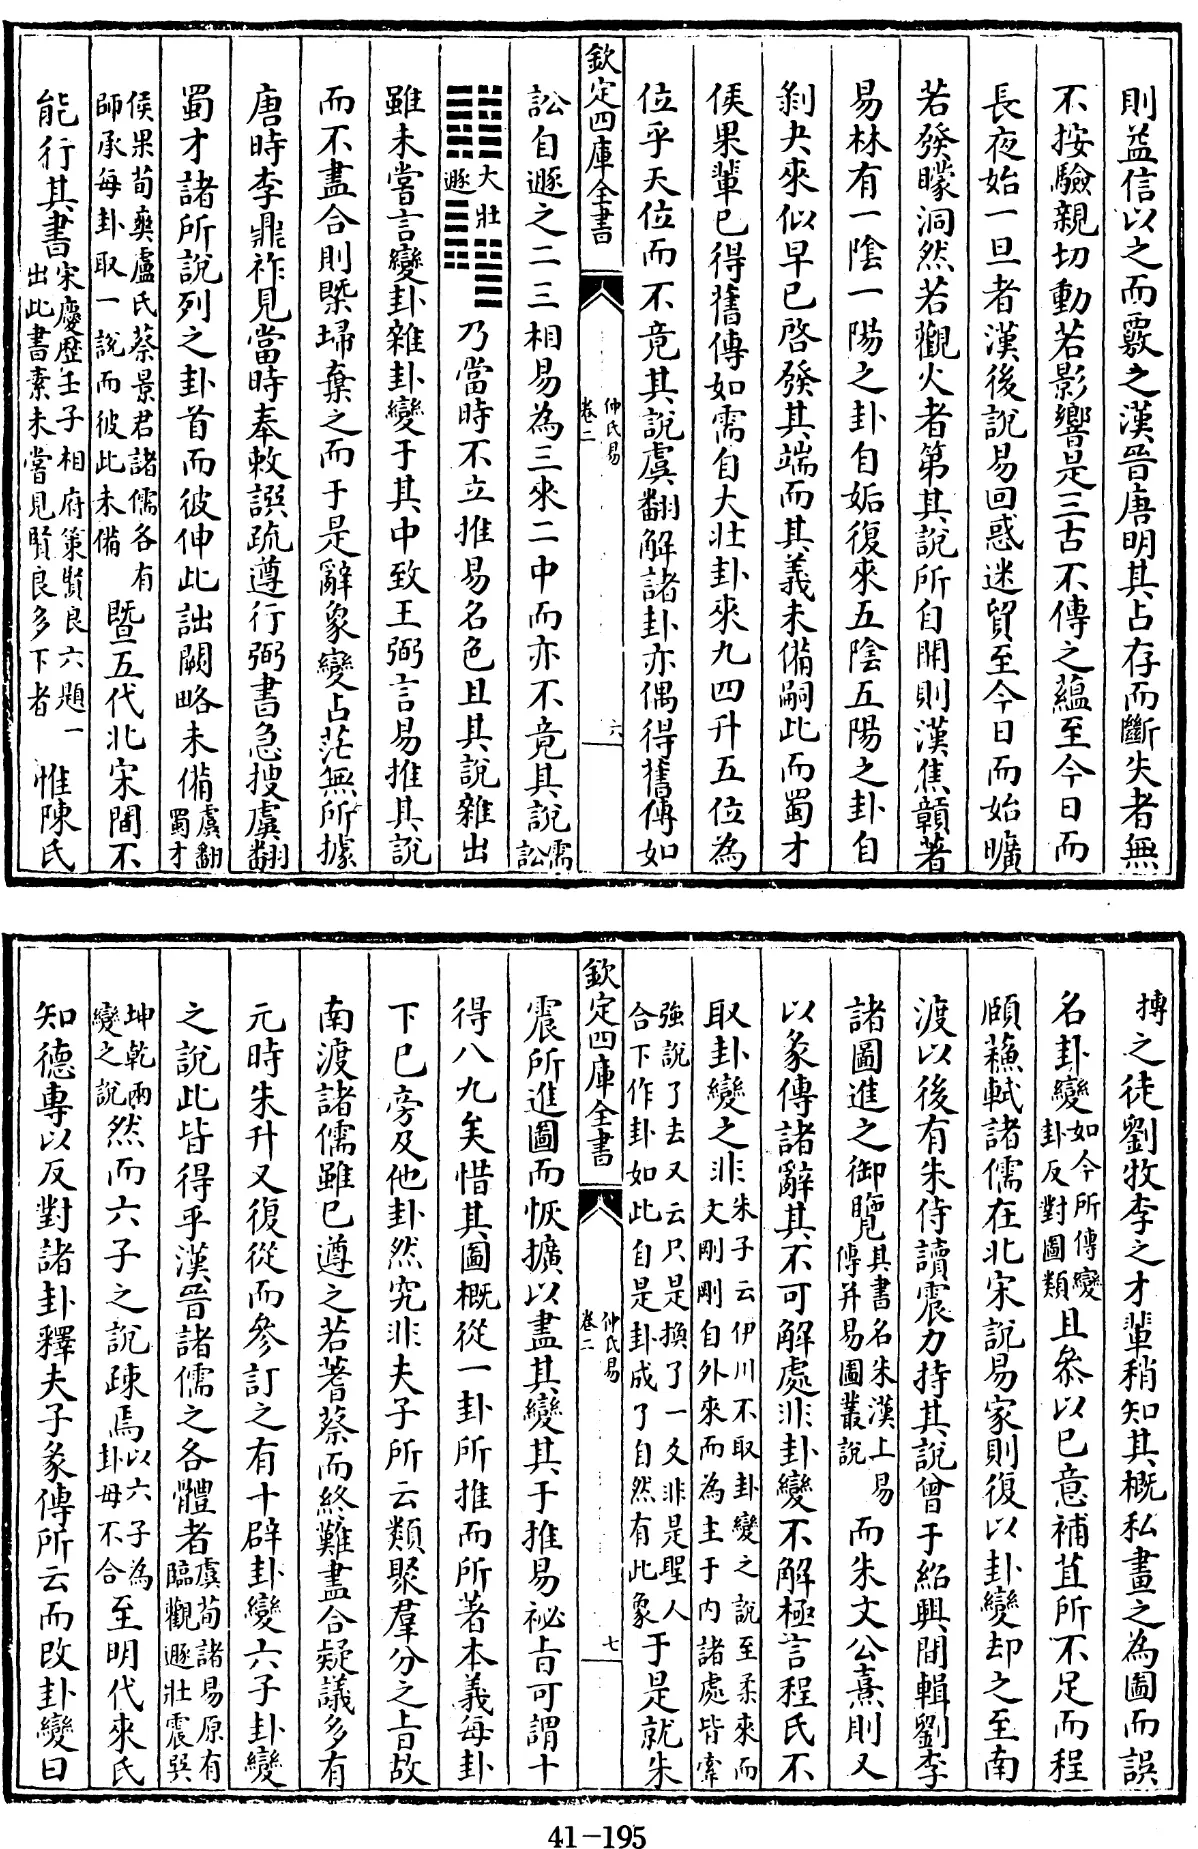 則益信以之而覈之漢晉唐明其占存而斷失者無
不按驗親切動若影響是三古不傳之蘊至今日而
長夜始一旦者漢後說易回惑迷貿至今日而始曠
若發矇洞然若觀火者第其說所自開則漢焦贛著
易林有一陰一陽之卦自姤復來五陰五陽之卦自
剝夬來似早已啓發其端而其義未備嗣此而蜀才
侯果輩已得舊傳如需自大壯卦來九四升五位為
位乎天位而不竟其說虞翻解諸卦亦偶得舊傳如
欽定四庫全書
仲氏易
卷二
六
訟自遯之二三相易為三來二中而亦不竟其說需
訟
大壯
遯
乃當時不立推易名色且其說雜出
雖未嘗言變卦雜卦變于其中致王弼言易推其說
而不盡合則槩埽棄之而于是辭象變占茫無所據
唐時李鼎祚見當時奉敕譔疏遵行弼書急搜虞翻
蜀才諸所說列之卦首而彼伸此詘闕略未備虞翻
蜀才
侯果荀爽盧氏蔡景君諸儒各有
師承每卦取一說而彼此未備
暨五代北宋間不
能行其書
宋慶歷壬子相府策賢良六題一
出此書素未嘗見賢良多下者
惟陳氏
搏之徒劉牧李之才輩稍知其概私畫之為圖而誤
名卦變
如今所傳變
卦反對圖類
且叅以已意補苴所不足而程
頤蘓軾諸儒在北宋說易家則復以卦變却之至南
渡以後有朱侍讀震力持其說曾于紹興間輯劉李
諸圖進之御覽
其書名朱漢上易
傳并易圖叢說
而朱文公熹則又
以彖傳諸辭其不可解處非卦變不解極言程氏不
取卦變之非
朱子云伊川不取卦變之說至柔來而
文剛剛自外來而為主于内諸處皆牽
強說了去又云只是換了一爻非是聖人
合下作卦如此自是卦成了自然有此象
于是就朱
欽定四庫全書
仲氏易
卷二
七
震所進圖而恢擴以盡其變其于推易祕旨可謂十
得八九矣惜其圖概從一卦所推而所著本義每卦
下已旁及他卦然究非夫子所云類聚羣分之旨故
南渡諸儒雖已遵之若蓍蔡而終難盡合疑議多有
元時朱升又復從而參訂之有十辟卦變六子卦變
之說此皆得乎漢晉諸儒之各體者
虞荀諸易原有
臨觀遯壯震㢲
坤乾兩
變之說
然而六子之說疎焉
以六子為
卦母不合
至明代來氏
知德專以反對諸卦釋夫子彖傳所云而改卦變曰
41-195